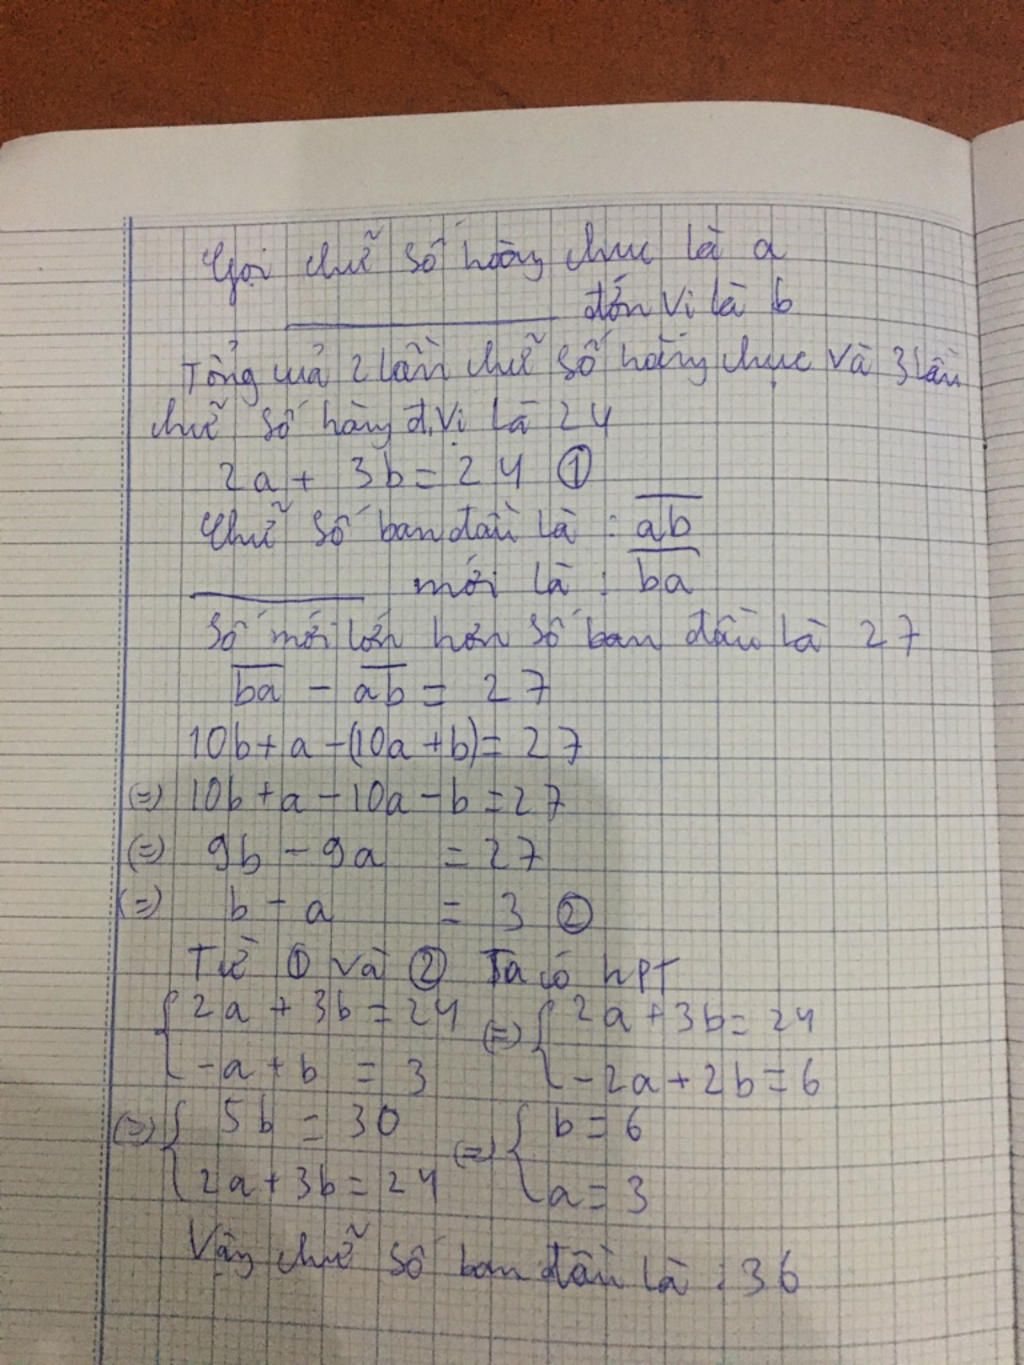 Gọi chữ số hàng chục là a
đơn vị là b
Tổng của 2 lần chữ số hàng chục và 3 lần
chữ số hàng đ.vị là 24
2a + 3b = 24 ①
Chữ số ban đầu là : ab
mới là : ba
Số mới lớn hơn số ban đầu là 27
ba - ab = 27
10b + a - (10a + b) = 27
(=) 10b + a - 10a - b = 27
(=) 9b - 9a = 27
(=) b - a = 3 ②
Từ ① và ② Ta có hpt
{ 2a + 3b = 24 (=) { 2a + 3b = 24
-a + b = 3 -2a + 2b = 6
(=) { 5b = 30 (=) { b = 6
2a + 3b = 24 a = 3
Vậy chữ số ban đầu là : 36